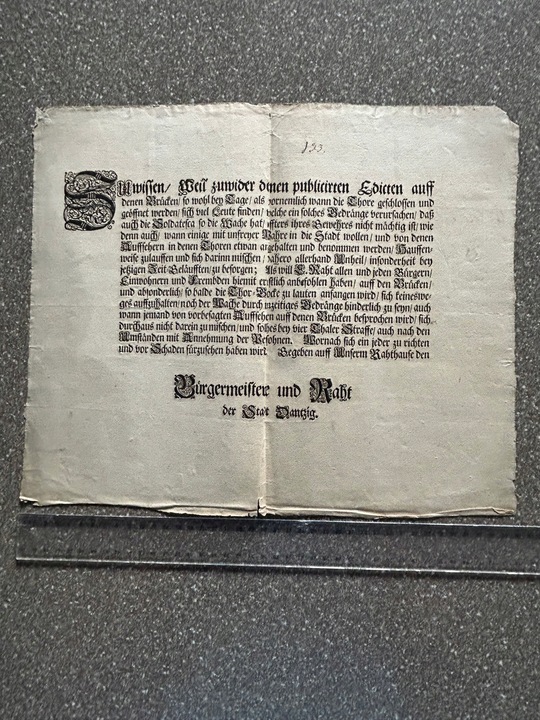 133.
ZUwissen/ Weil zuwider denen publicirten Edicten auff
denen Brücken/ so wohl bey Tage/ als vornemlich wann die Thore geschlossen und
geöffnet werden/ sich viel Leute finden/ welche ein solches Gedränge verursachen/ daß
auch die Soldatesca so die Wache hat/ öffters ihres Gewehres nicht mächtig ist/ wie
denn auch/ wann einige mit unfreyer Wahre in die Stadt wollen/ und von denen
Auffsehern in denen Thoren etwan angehalten und benommen werden/ Hauffen-
weise zulauffen und sich darinn mischen/ dahero allerhand Unheil/ insonderheit bey
jetzigen Zeit-Geläufften/ zu besorgen; Als will E. Raht allen und jeden Bürgern/
Einwohnern und Frembden hiemit ernstlich anbefohlen haben/ auff den Brücken/
und absonderlich/ so balde die Thor-Glocke zu lauten anfangen wird/ sich keineswe-
ges auffzuhalten/ noch der Wache durch unzeitiges Gedränge hinderlich zu seyn/ auch
wann jemand von vorbesagten Auffsehen auff denen Brücken besprochen wird/ sich
durchaus nicht darein zu mischen/ und solches bey vier Thaler Straffe/ auch nach den
Umständen mit Annehmung der Persohnen. Wornach sich ein jeder zu richten
und vor Schaden fürzusehen haben wird. Gegeben auff Unserm Rahthause den
Bürgermeistere und Raht
der Stat Dantzig.